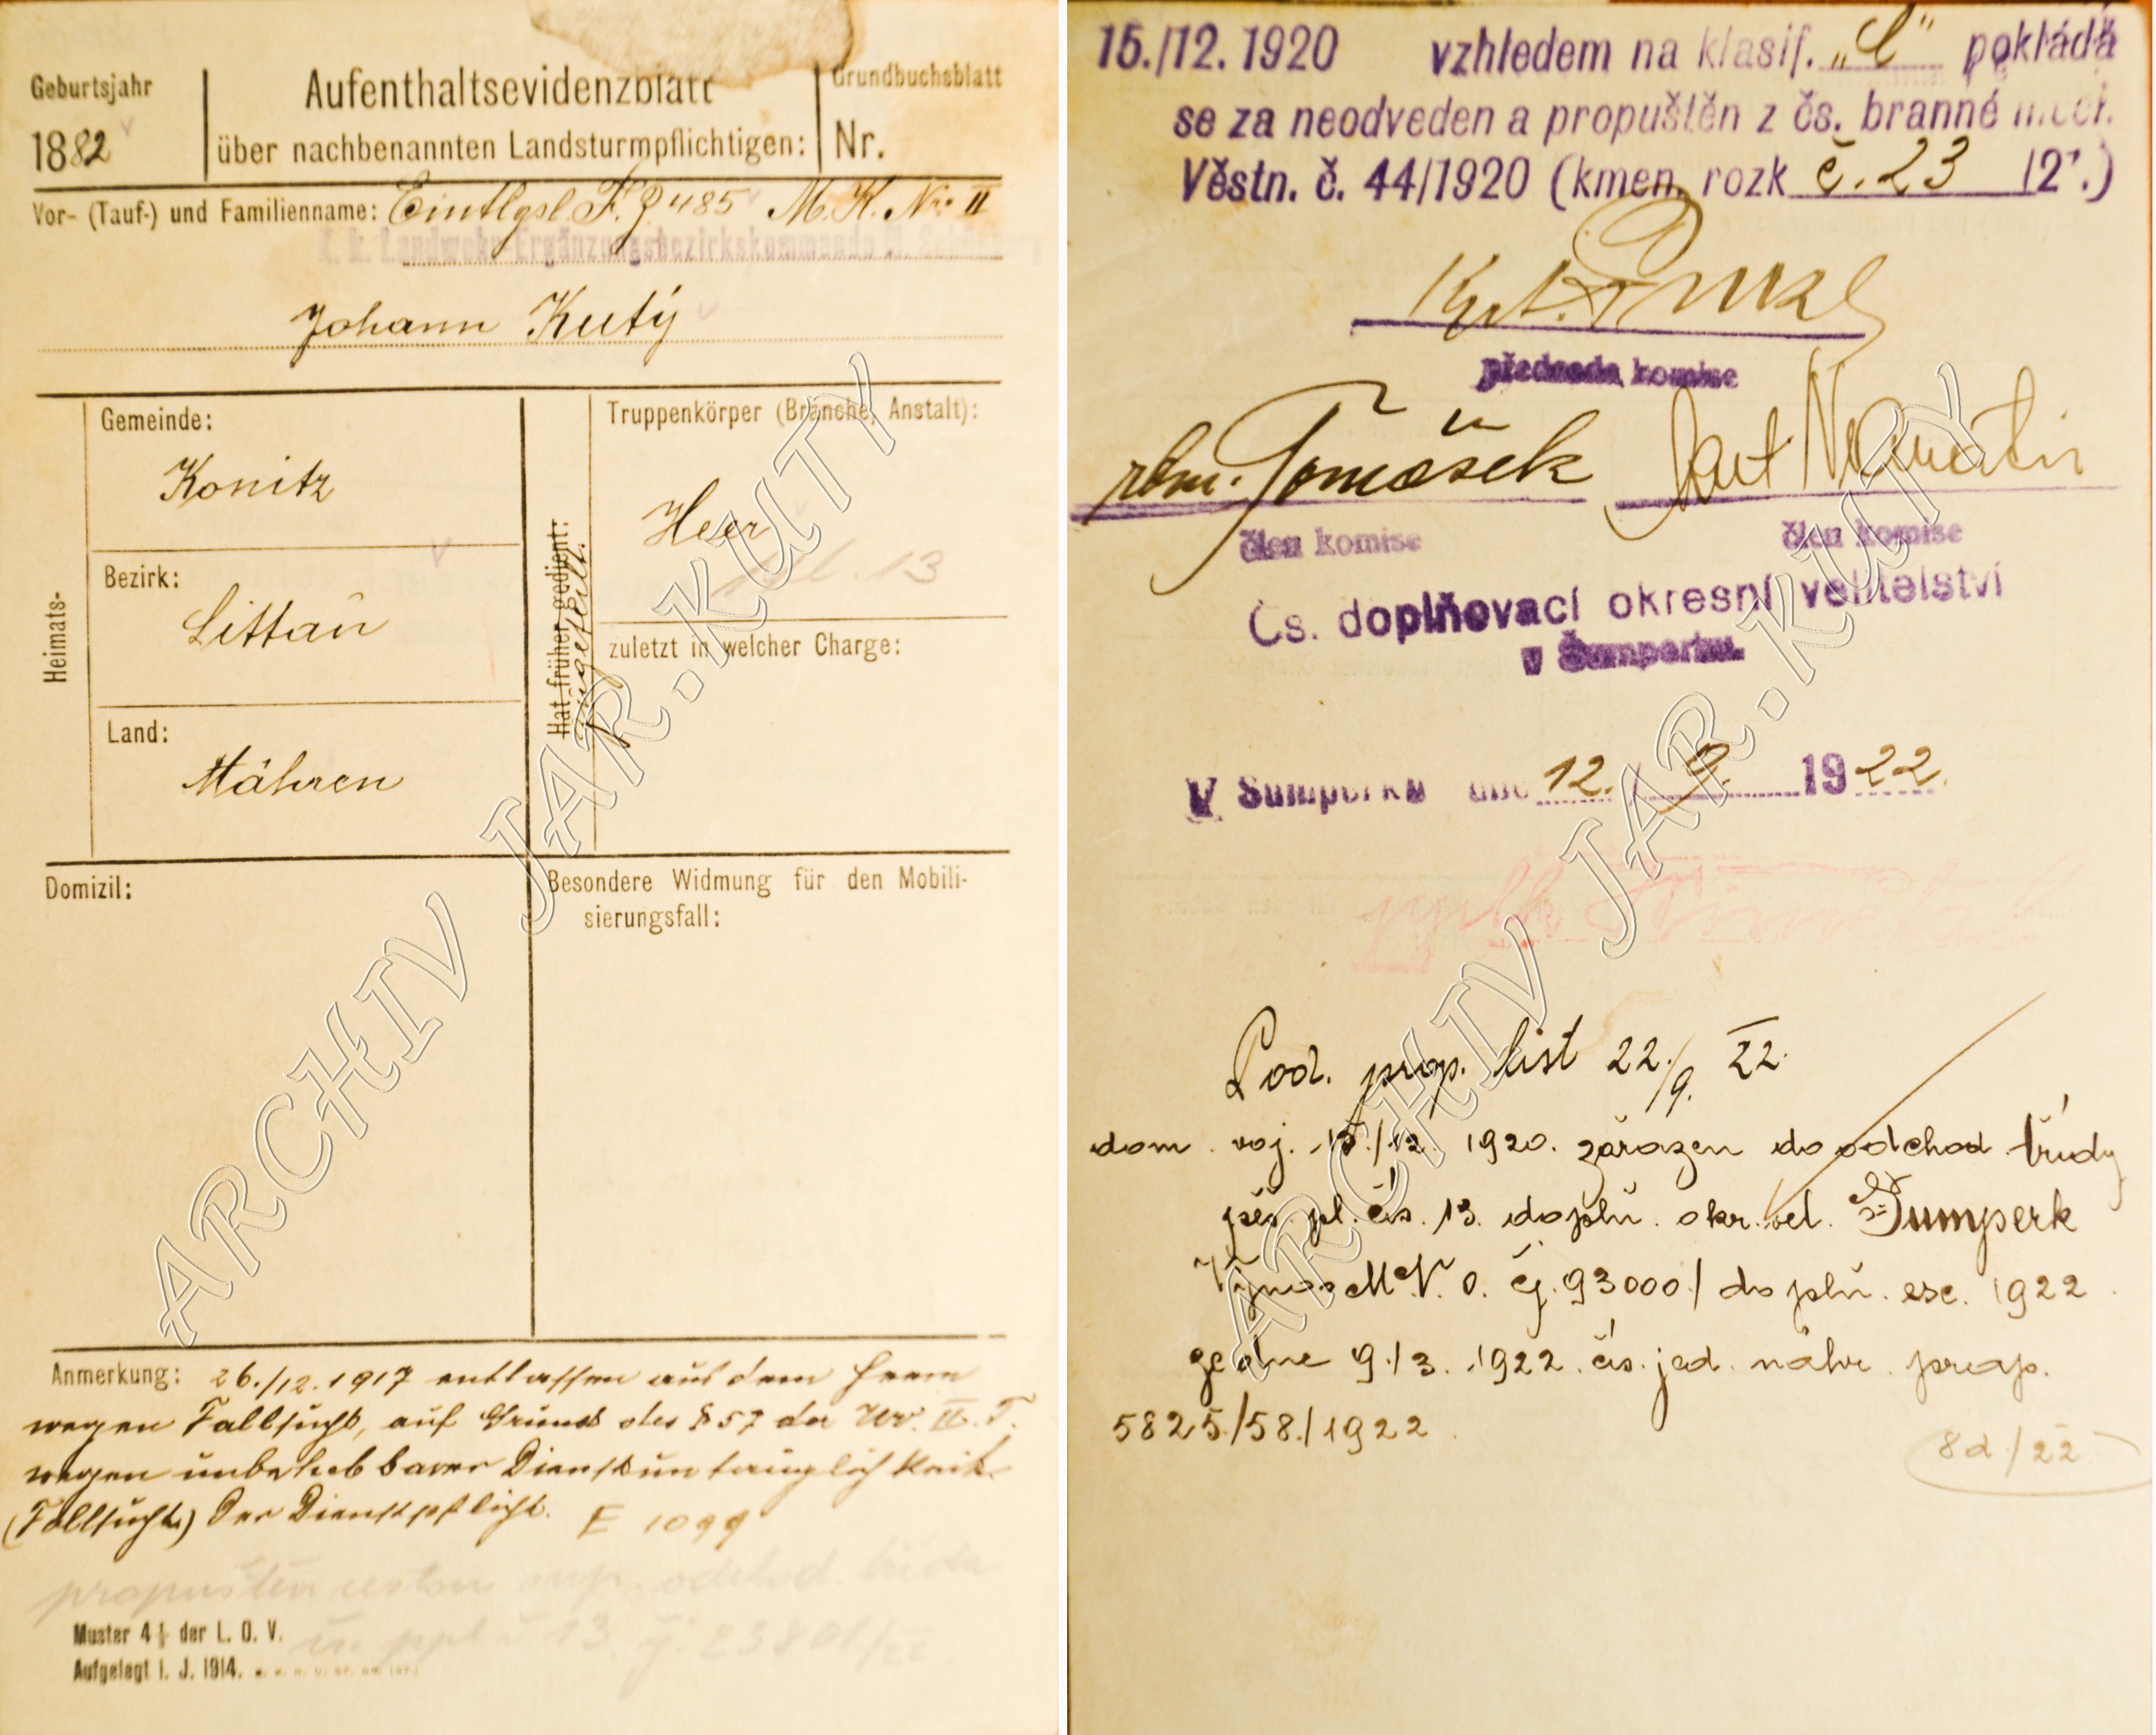 Geburtsjahr
1882
Aufenthaltsevidenzblatt
über nachbenannten Landsturmpflichtigen:
Grundbuchsblatt
Nr.
Vor- (Tauf-) und Familienname: Eintlgsl F. Z 485 M. K. Nr. II
K. k. Landwehr-Ergänzungsbezirkskommando
Johann Kutý
Heimats-
Gemeinde:
Konitz
Bezirk:
Littau
Land:
Mähren
Hat früher gedient:
Eingeteilt:
Truppenkörper (Branche, Anstalt):
Heer
13
zuletzt in welcher Charge:
Domizil:
Besondere Widmung für den Mobili-
sierungsfall:
Anmerkung: 26./12. 1917 entlassen aus dem Heere
wegen Fallsucht, auf Grund des § 57 der Wv. II. T.
wegen unbehebbarer Dienstuntauglichkeit
(Fallsucht) der Dienstpflicht. E 1099
propuštěn cestou sup. odchod. třída
13. 23801/22
Muster 4 ½ der L. O. V.
Aufgelegt i. J. 1914.
ARCHIV JAR.KUTY
15./12. 1920 vzhledem na klasif. „C" pokládá
se za neodveden a propuštěn z čs. branné moci.
Věstn. č. 44/1920 (kmen. rozk č. 23 12'.)
předseda komise
Tomášek
člen komise
člen komise
Čs. doplňovací okresní velitelství
v Šumperku
V Šumperku dne 12. 9. 1922.
Pod. prop. list 22./9. 22.
dom. voj. 15./12. 1920. zařazen do odchod. třídy
pěš. pl. čís. 13. doplň. okr. vel. Šumperk
Výnos M.N.O. čj. 93000/ doplň. ex. 1922
ze dne 9./3. 1922. čís. jed. náhr. prap.
5825./58./1922.
8d./22
ARCHIV JAR.KUTY